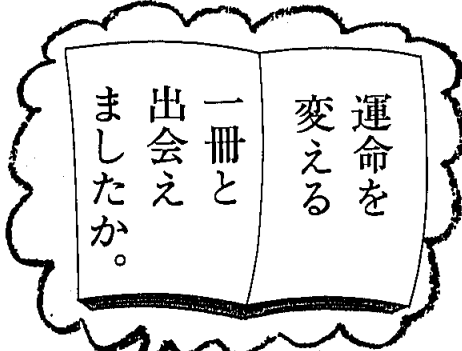 運命を
変える
一冊と
出会え
ましたか。